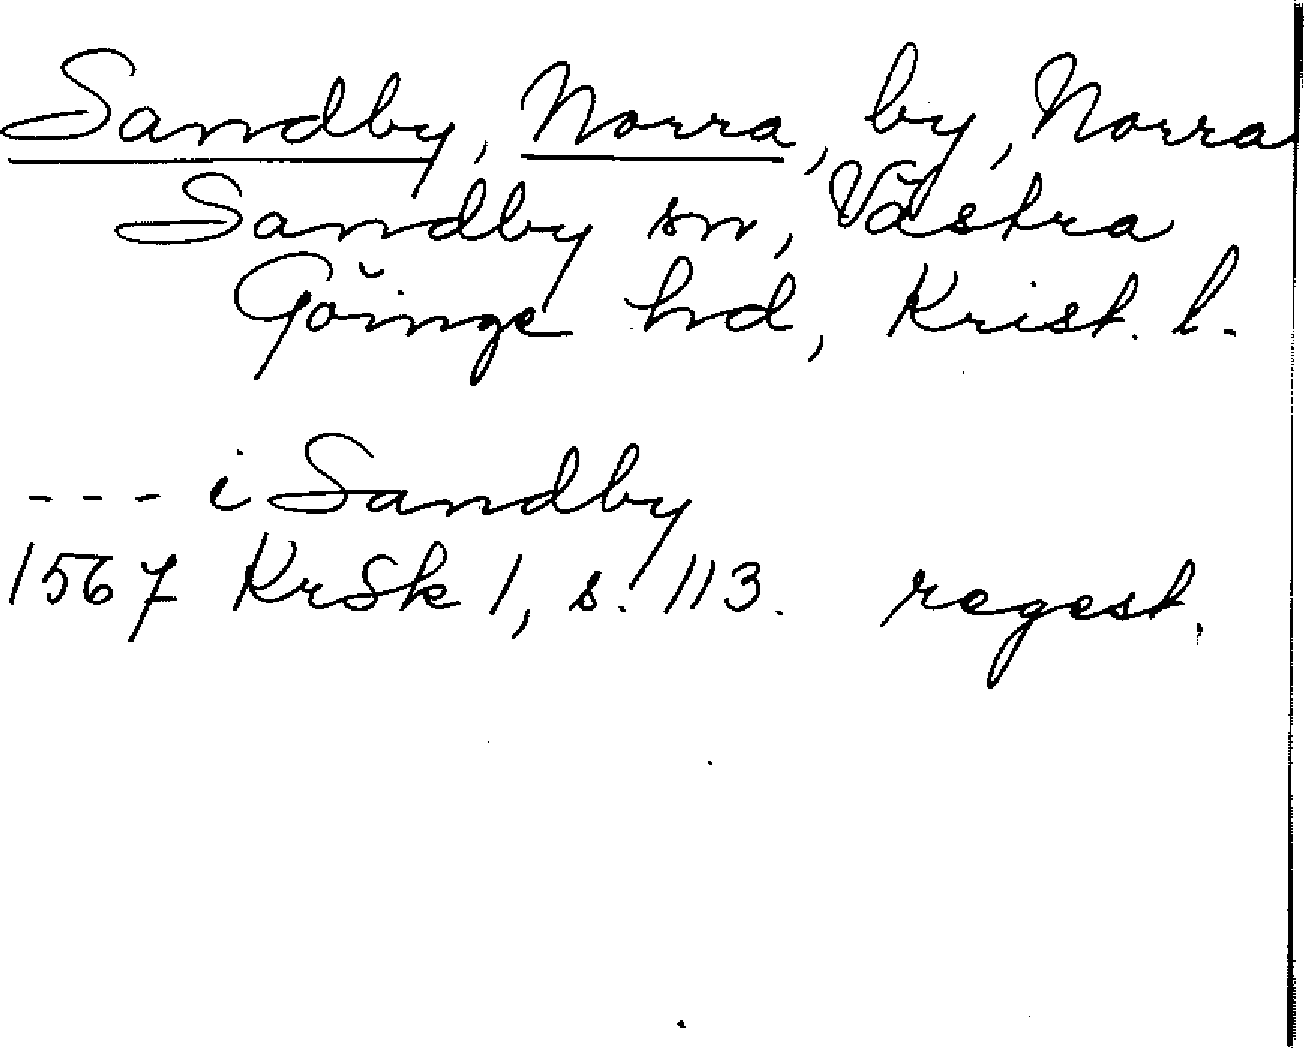 Sandby, Norra, by, Norra
Sandby sn, Västra
Göinge hd, Krist. l.
--- i Sandby
1567 KrSk 1, s. 113. regest.